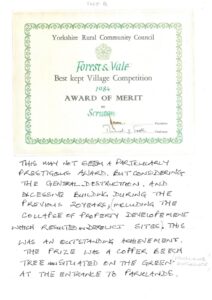 Yorkshire Rural Community Council
Forest & Vale
Best kept Village Competition
1984
AWARD OF MERIT
to
Scruton
THIS MAY NOT SEEM A PARTICULARLY
PRESTIGIOUS AWARD, BUT CONSIDERING
THE GENERAL DESTRUCTION, AND
EXCESSIVE BUILDING DURING THE
PREVIOUS 20 YEARS, INCLUDING THE
COLLAPSE OF PROPERTY DEVELOPEMENT
WHICH RESULTED IN DERELICT SITES, THIS
WAS AN OUTSTANDING ACHIEVEMENT.
THE PRIZE WAS A COPPER BEECH
TREE NOW SITUATED ON THE GREEN
AT THE ENTRANCE TO PARKLANDS.